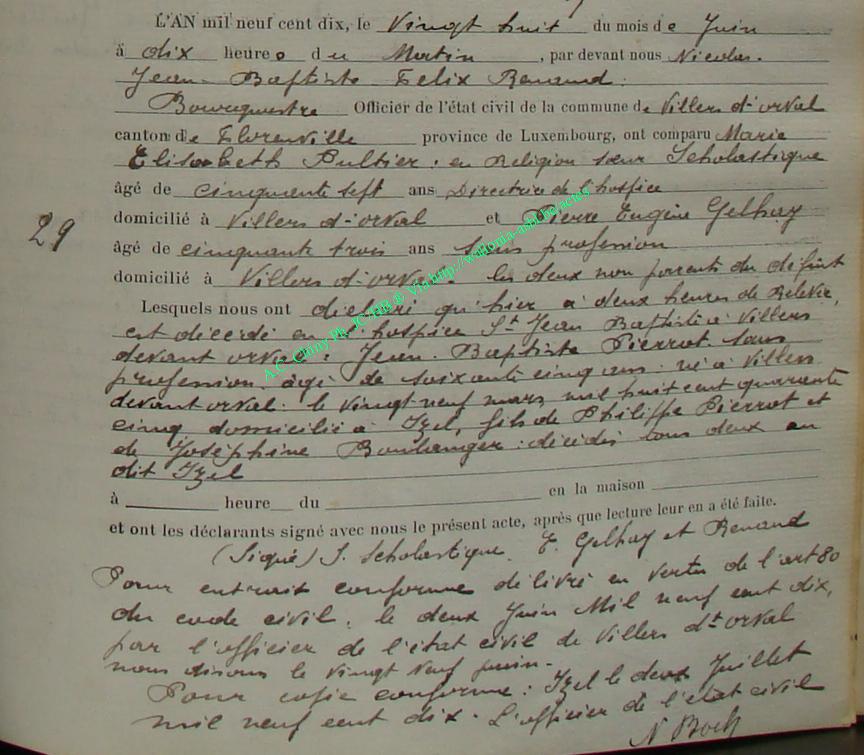 L'AN mil neuf cent dix, le Vingt huit du mois de Juin
à dix heures du Matin, par devant nous Nicolas.
Jean-Baptiste Felix Renaud.
Bourgmestre Officier de l'état civil de la commune de Villers d'orval
canton de Florenville province de Luxembourg, ont comparu Marie
Elisabeth Pultier. en Religion sœur Scholastique
âgé de cinquante sept ans Directrice de l'hospice
domicilié à Villers d'orval et Pierre Eugène Gelhay
29
âgé de cinquante trois ans sans profession
domicilié à Villers d'orval. les deux non parents du défunt
Lesquels nous ont déclaré qu'hier à deux heures de Relevée,
est décédé en l'hospice St Jean Baptiste à Villers
devant orval: Jean-Baptiste Pierrot sans
profession. agé de soixante cinq ans. né à Villers
devant orval. le vingt neuf mars mil huit cent quarante
cinq domicilié à Izel, fils de Philippe Pierrot et
de Joséphine Boulanger: décédés tous deux au
dit Izel
à heure du en la maison
et ont les déclarants signé avec nous le présent acte, après que lecture leur en a été faite.
(Signé) S. Scholastique. E. Gelhay et Renaud
Pour extrait conforme délivré en vertu de l'art 80
du code civil. le deux Juin Mil neuf cent dix,
par l'officier de l'état civil de Villers dt orval
nous disons le vingt neuf juin.
Pour copie conforme: Izel le deux Juillet
mil neuf cent dix. L'officier de l'état civil
N Bock
A.C. Chiny Ph. JC HB @ Via http://wallonia-asbl.be/actes